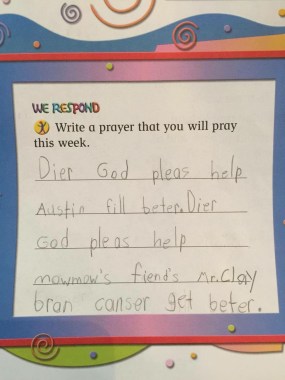 WE RESPOND
Write a prayer that you will pray
this week.
Dier God pleas help
Austin fill beter. Dier
God pleas help
mawmaw's fiend's Mr. Clay
bran canser get beter.